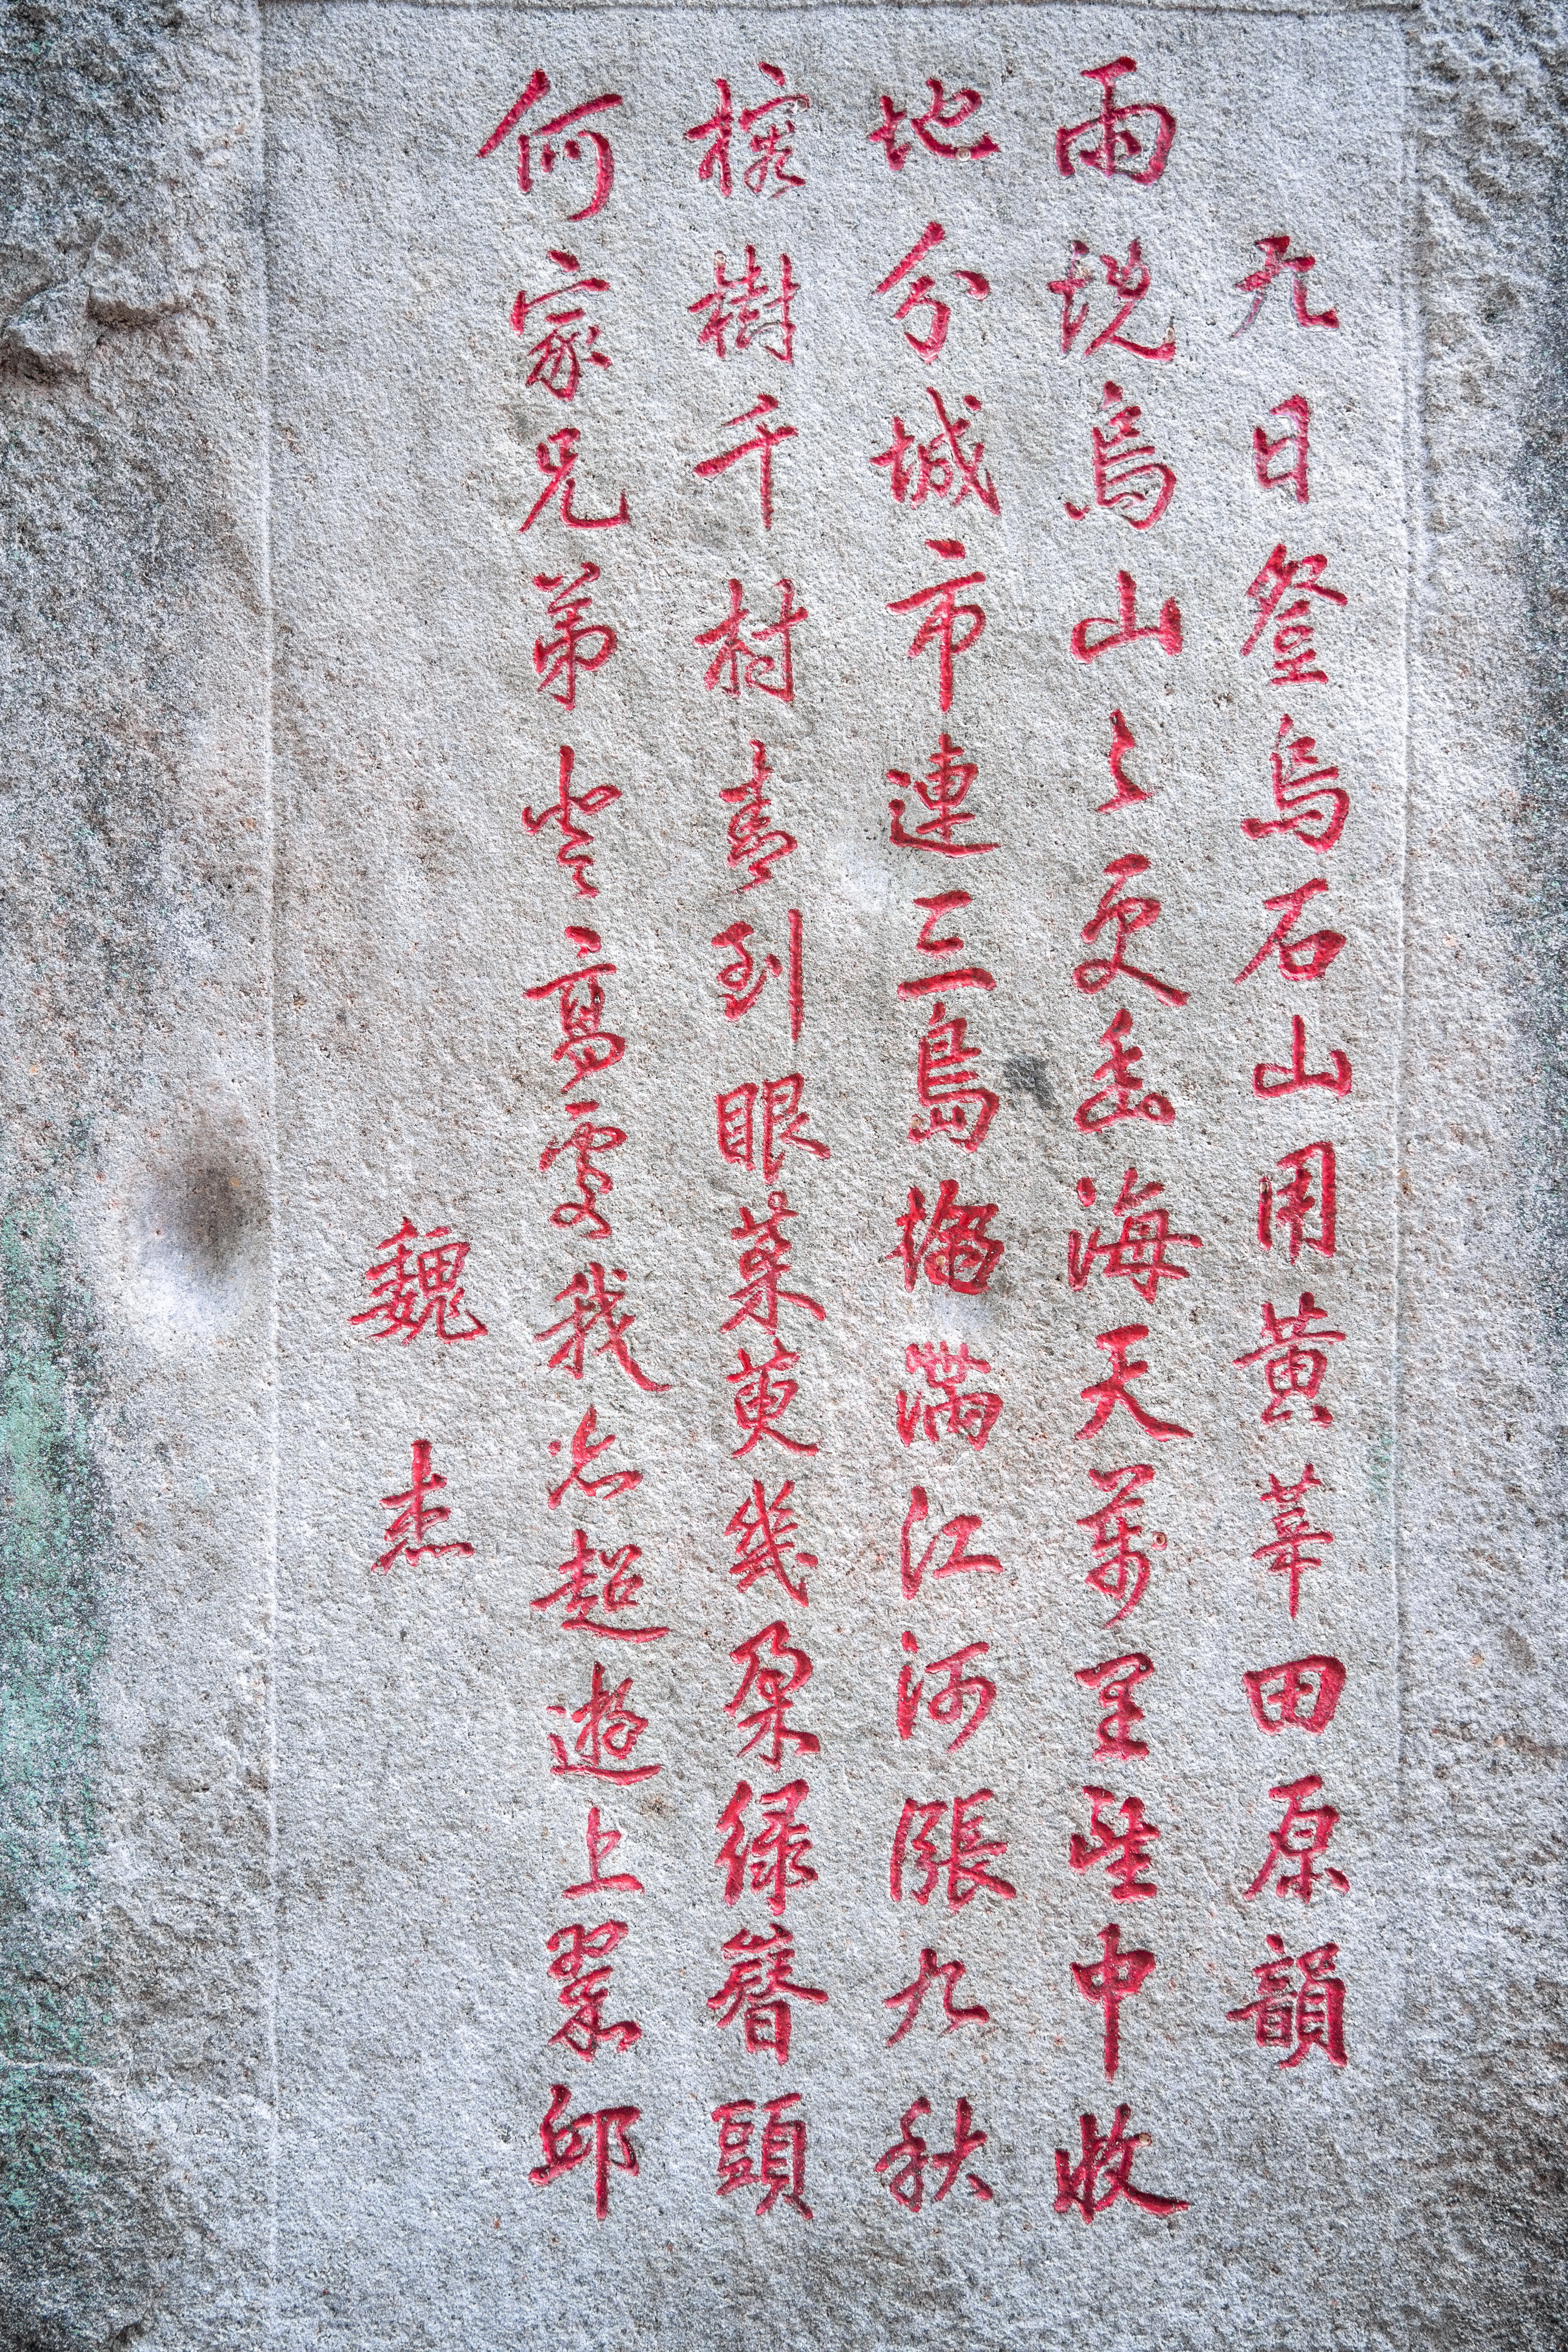 九日登烏石山用黃莘田原韻
雨烏山々更幽海天萬里望中收
地分城市連三島滿江河漲九秋
榕樹千村喜到眼茱萸幾朵綠簪頭
何家兄弟登高處我亦超遊上翠邱
魏杰